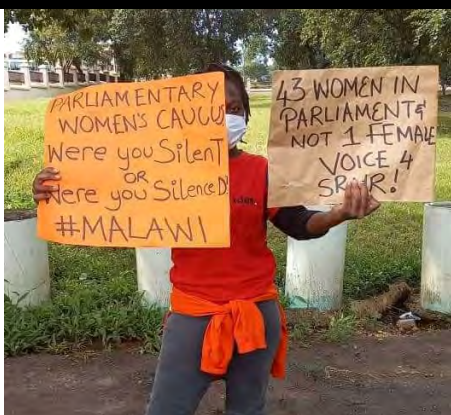 PARLIAMENTARY
WOMEN'S CAUCUS
Were you SilenT
OR
Were you SilenceD?
#MALAWI
43 WOMEN IN
PARLIAMENT &
NOT 1 FEMALE
VOICE 4
SRHR!